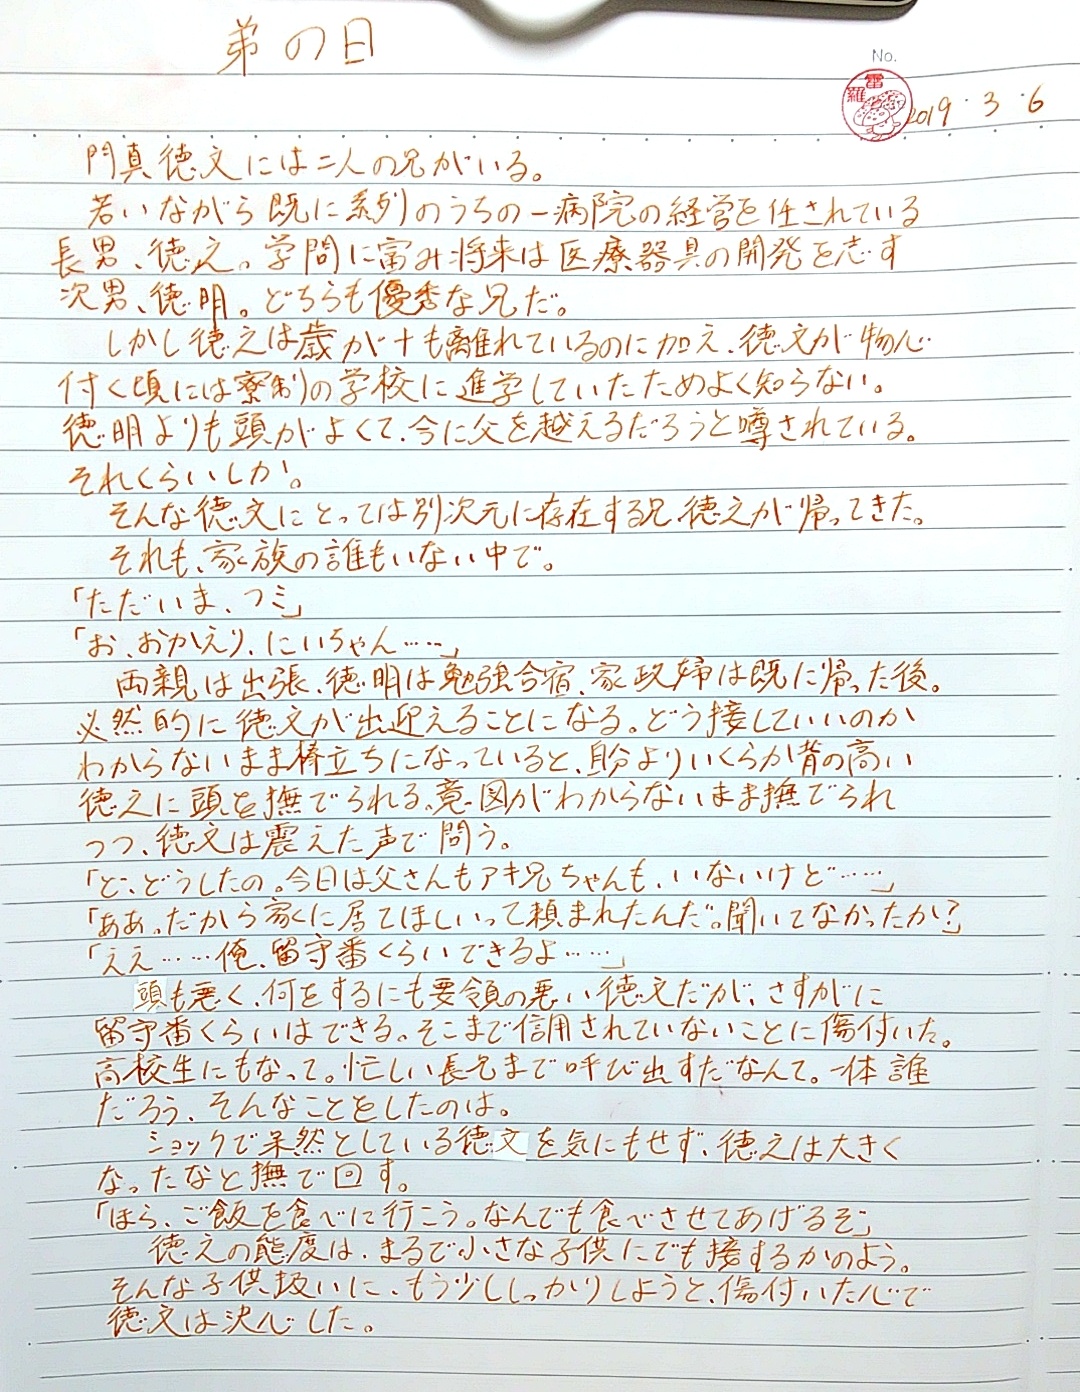 弟の日
No.
雷
羅
2019・3・6
門真徳文には二人の兄がいる。
若いながら既に系列のうちの一病院の経営を任されている
長男、徳之。学問に富み将来は医療器具の開発を志す
次男、徳明。どちらも優秀な兄だ。
しかし徳之は歳が十も離れているのに加え、徳文が物心
付く頃には寮制の学校に進学していたためよく知らない。
徳明よりも頭がよくて、今に父を越えるだろうと噂されている。
それくらいしか。
そんな徳文にとっては別次元に存在する兄、徳之が帰ってきた。
それも、家族の誰もいない中で。
「ただいま、フミ」
「お、おかえり、にいちゃん……」
両親は出張、徳明は勉強合宿、家政婦は既に帰った後。
必然的に徳文が出迎えることになる。どう接していいのか
わからないまま棒立ちになっていると、自分よりいくらか背の高い
徳之に頭を撫でられる。意図がわからないまま撫でられ
つつ、徳文は震えた声で問う。
「ど、どうしたの。今日は父さんもアキ兄ちゃんも、いないけど……」
「ああ。だから家に居てほしいって頼まれたんだ。聞いてなかったか?」
「ええ……俺、留守番くらいできるよ……」
頭も悪く、何をするにも要領の悪い徳文だが、さすがに
留守番くらいはできる。そこまで信用されていないことに傷付いた。
高校生にもなって。忙しい長兄まで呼び出すだなんて。一体誰
だろう、そんなことをしたのは。
ショックで呆然としている徳文を気にもせず、徳之は大きく
なったなと撫で回す。
「ほら、ご飯を食べに行こう。なんでも食べさせてあげるぞ」
徳之の態度は、まるで小さな子供にでも接するかのよう。
そんな子供扱いに、もう少ししっかりしようと、傷付いた心で
徳文は決心した。